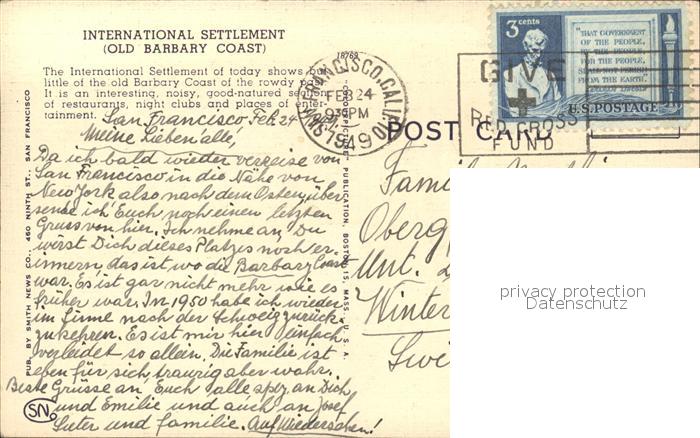 INTERNATIONAL SETTLEMENT
(OLD BARBARY COAST)
The International Settlement of today shows but
little of the old Barbary Coast of the rowdy past.
It is an interesting, noisy, good-natured section
of restaurants, night clubs and places of enter-
tainment.
San Francisco Feb. 24
Meine Lieben alle,
Da ich bald wieder verreise von
San Francisco in die Nähe von
New York also nach dem Osten, über
sende ich Euch noch einen letzten
Gruss von hier. Ich nehme an, Du
wirst Dich dieses Platzes noch er-
innern, das ist wo die Barbary Coast
war. Es ist gar nicht mehr wie es
früher war. In 1950 habe ich wieder
im Sinne nach der Schweiz zurück
zukehren. Es ist mir hier einfach
verleidet so allein. Die Familie ist
eben für sich, traurig aber wahr.
Beste Grüsse an Euch alle spez. an Dich
und Emilie und auch an Josef
Suter und Familie. Auf Wiedersehen!
SN
PUB. BY SMITH NEWS CO., 460 NINTH ST., SAN FRANCISCO
PUBLICATION, BOSTON 15, MASS., U. S. A.
18769
SAN FRANCISCO, CALIF.
FEB 24
930PM
1949
GIVE
RED CROSS
FUND
3 cents
"THAT GOVERNMENT
OF THE PEOPLE,
BY THE PEOPLE,
FOR THE PEOPLE,
SHALL NOT PERISH
FROM THE EARTH."
U.S. POSTAGE
POST CARD
Fami
Oberg
Unt.
Winter
Swi
privacy protection
Datenschutz